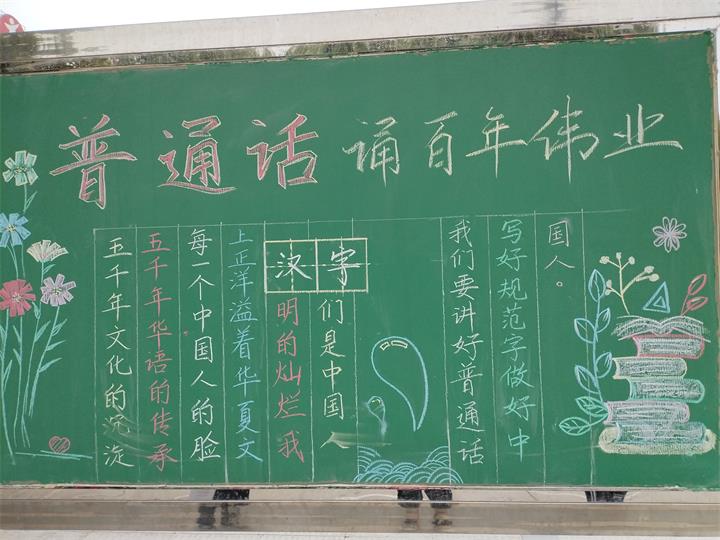 普通话 诵百年伟业
五千年文化的沉淀
五千年华语的传承
每一个中国人的脸
上正洋溢着华夏文
汉字
明的灿烂我
们是中国人
我们要讲好普通话
写好规范字做好中
国人。